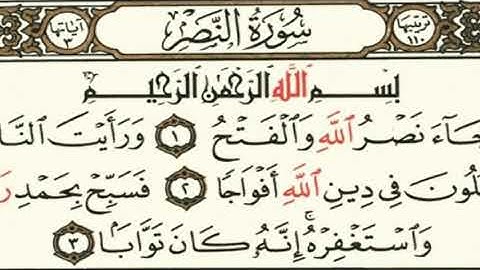 ترتيبها ١١٠ سُورَةُ النَّصْرِ آياتها ٣
بِسْمِ ٱللَّهِ ٱلرَّحْمَٰنِ ٱلرَّحِيمِ
جَآءَ نَصْرُ ٱللَّهِ وَٱلْفَتْحُ ١ وَرَأَيْتَ ٱلنَّا
لُونَ فِي دِينِ ٱللَّهِ أَفْوَاجًا ٢ فَسَبِّحْ بِحَمْدِ رَ
وَٱسْتَغْفِرْهُ ۚ إِنَّهُۥ كَانَ تَوَّابًۢا ٣